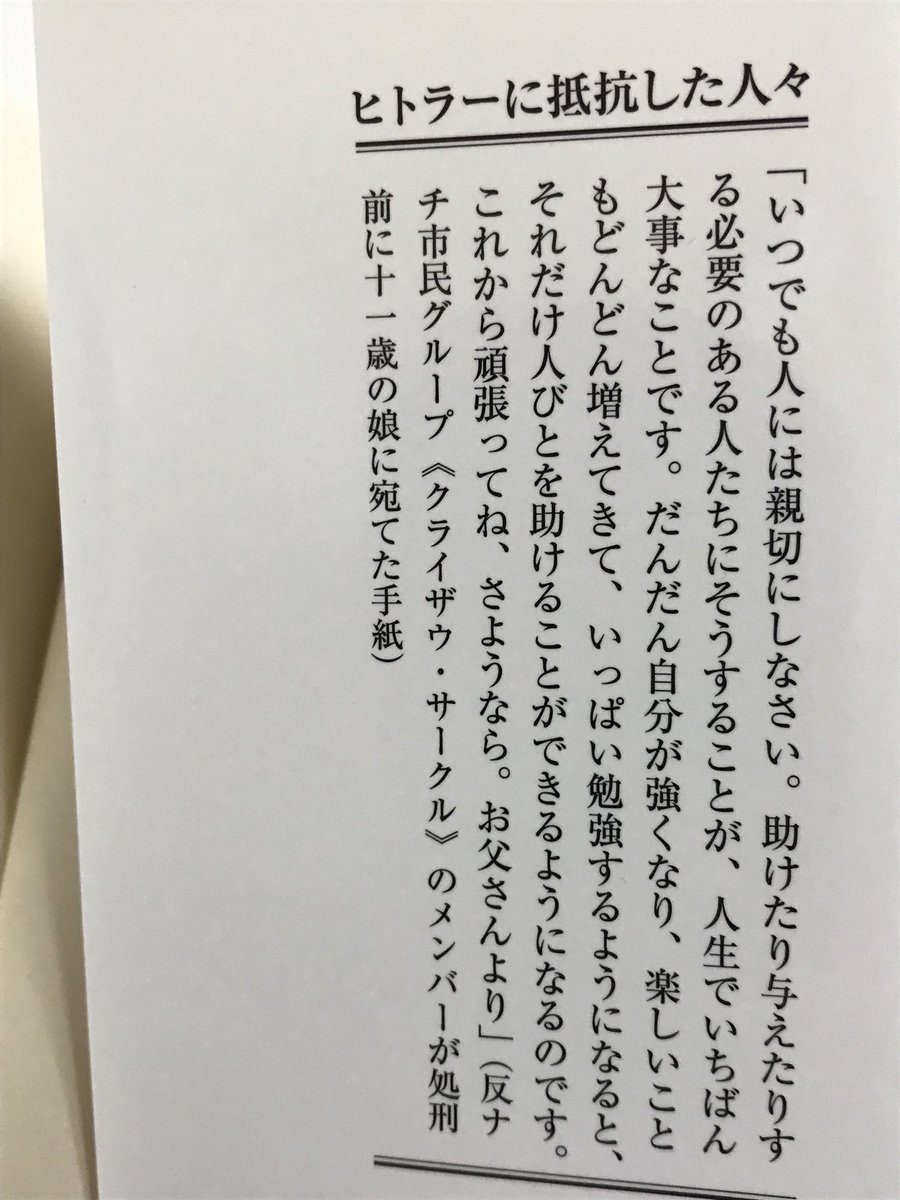 ヒトラーに抵抗した人々
「いつでも人には親切にしなさい。助けたり与えたりす
る必要のある人たちにそうすることが、人生でいちばん
大事なことです。だんだん自分が強くなり、楽しいこと
もどんどん増えてきて、いっぱい勉強するようになると、
それだけ人びとを助けることができるようになるのです。
これから頑張ってね、さようなら。お父さんより」（反ナ
チ市民グループ《クライザウ・サークル》のメンバーが処刑
前に十一歳の娘に宛てた手紙）